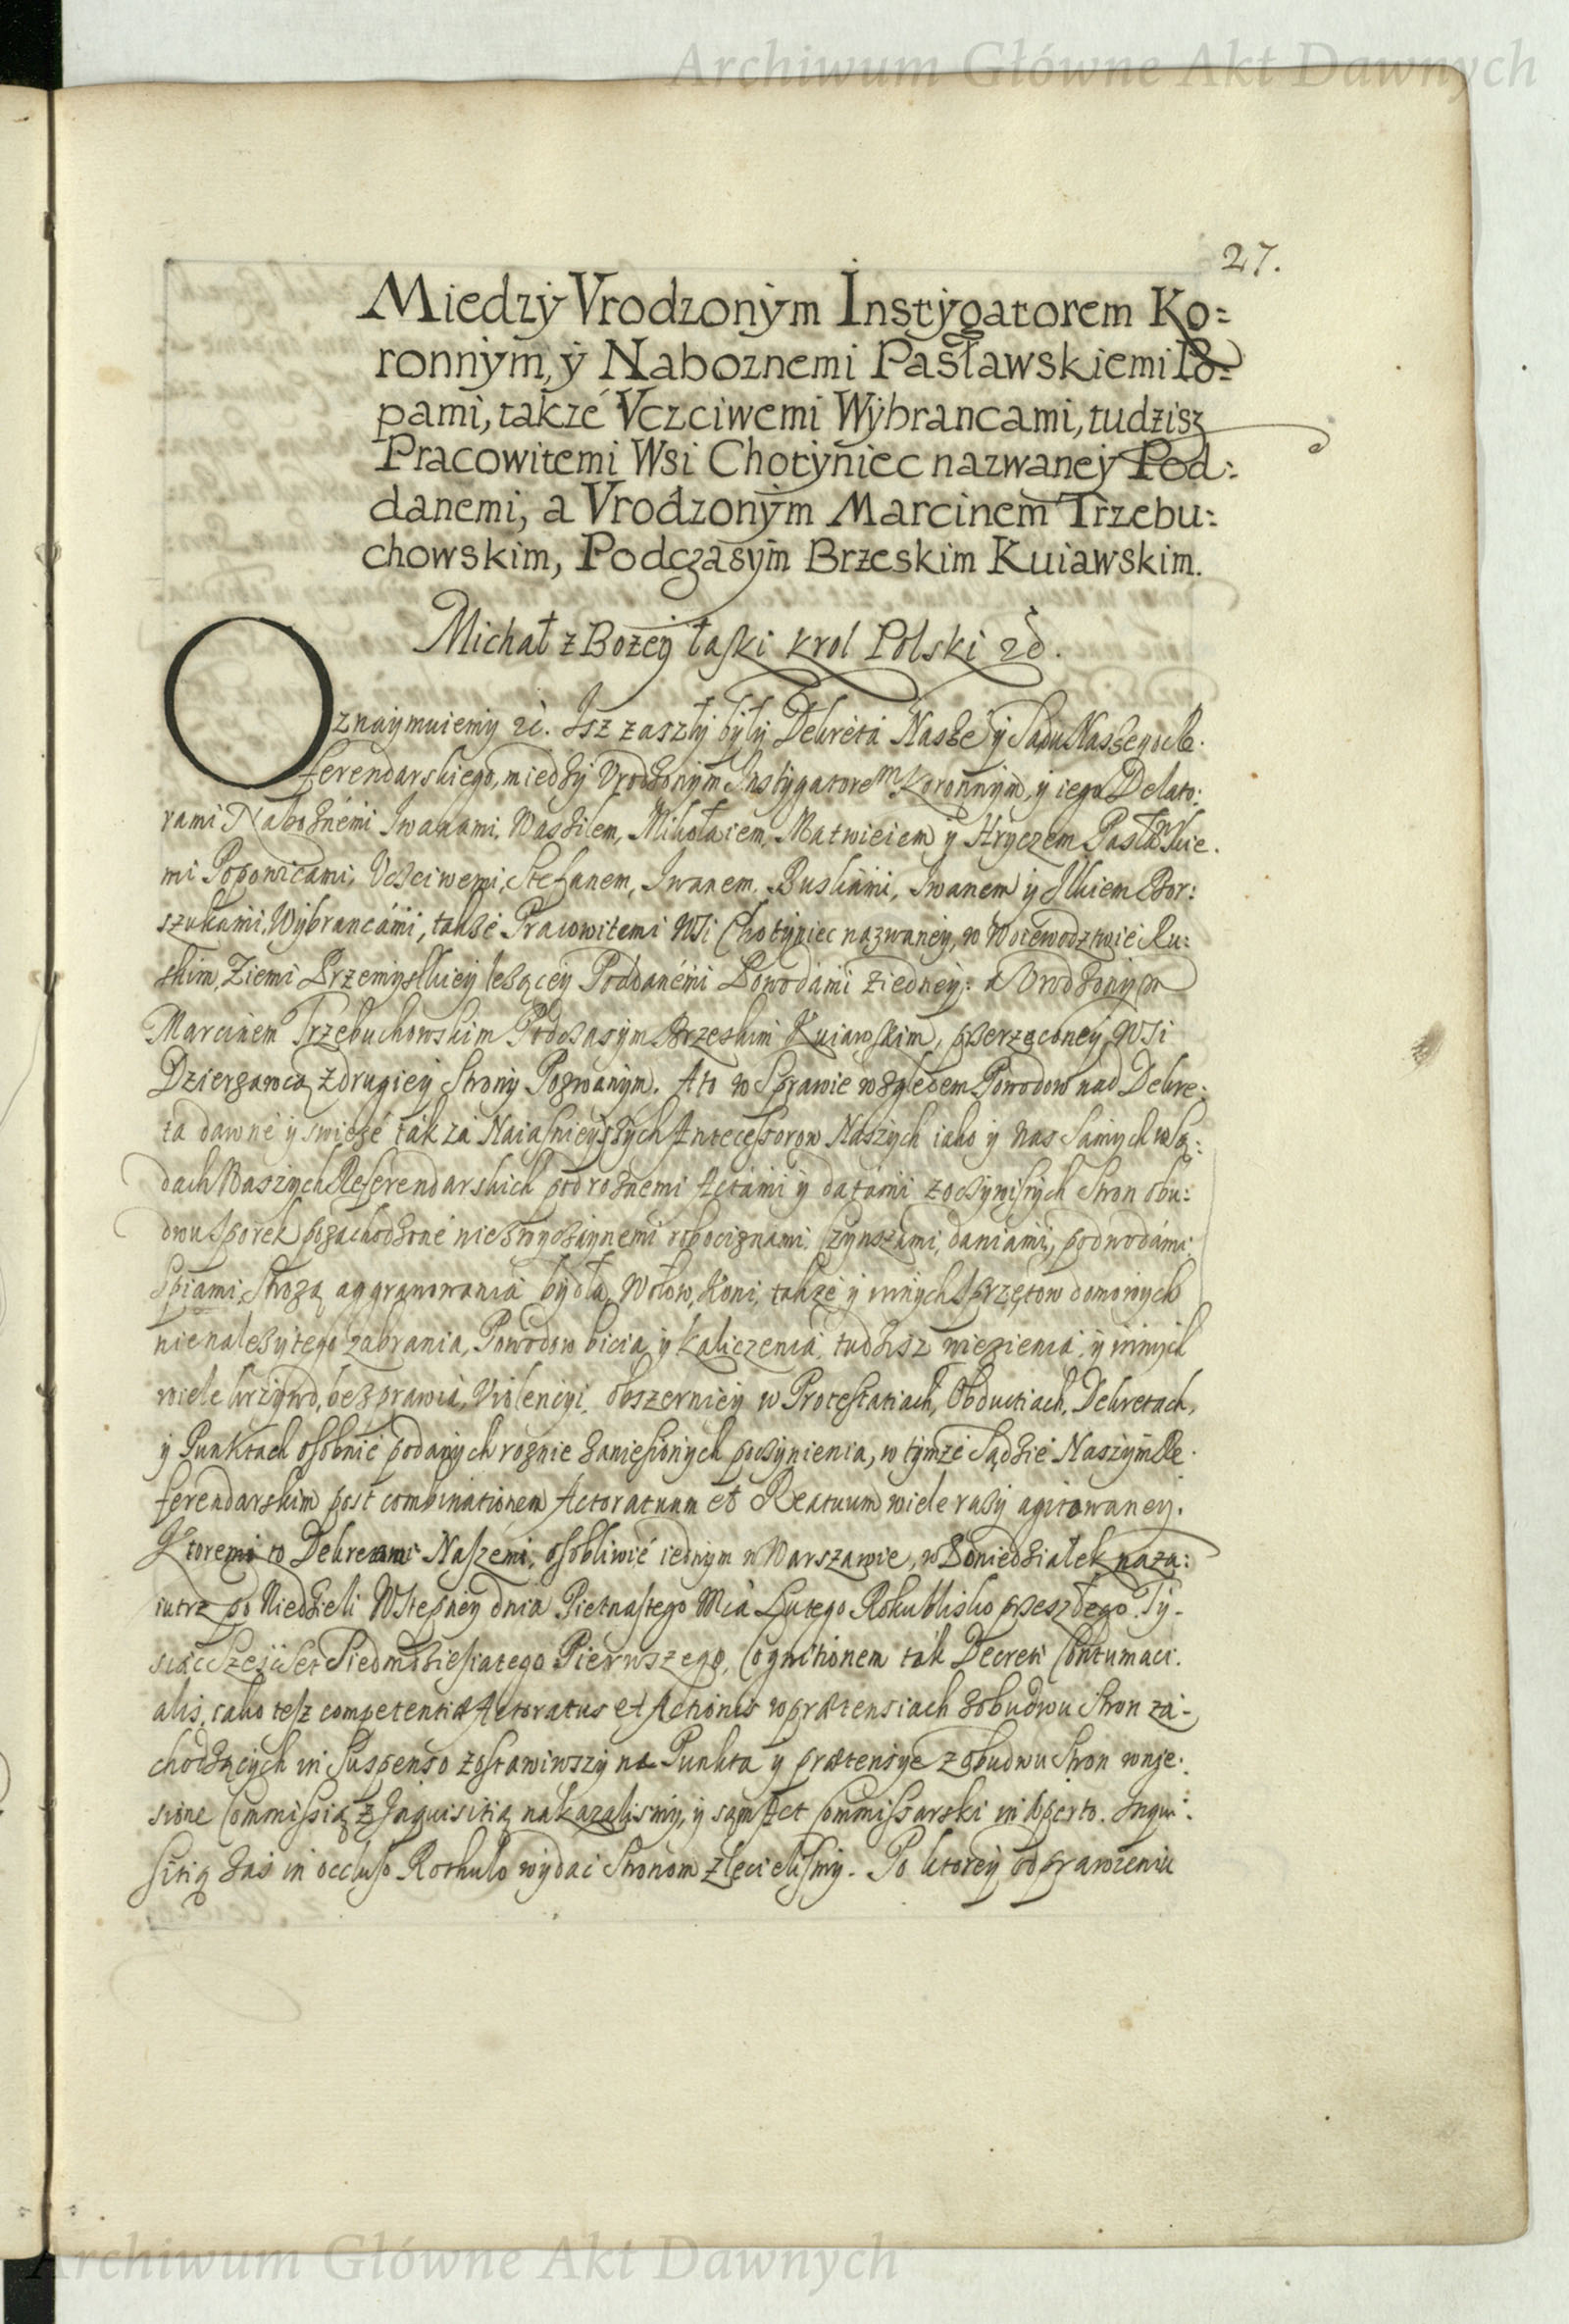 Archiwum Główne Akt Dawnych
27.
Miedzÿ Vrodzonÿm Instÿgatorem Ko=
ronnÿm, ÿ Naboznemi Pasławskiemi Po=
pami, takze Vczciwemi Wÿbrancami, tudzisz
Pracowitemi Wsi Chotÿniec nazwaneÿ Pod=
danemi, a Vrodzonÿm Marcinem Trzebu=
chowskim, Podczasÿm Brzeskim Kuiawskim.
Michał z Bożey łaski krol Polski &c.
Oznaÿmuiemÿ &c. Isz zaszłÿ bÿłÿ Dekreta Nasze ÿ Sądu Naszego Re-
ferendarskiego, miedzÿ Vrodzonÿm Instÿgatorem Koronnÿm, ÿ iego Delato:
rami Naboznemi Iwanami, Waszilem, Mikołaiem, Matwieiem ÿ Hryczem Pasławskie-
mi Popowicami, Vczciwemi Stefanem, Iwanem Buskami, Iwanem ÿ Ilkiem Bor:
szukami, Wÿbrancami, takze Pracowitemi Wsi Chotÿniec nazwaneÿ, w Woiewodztwie Ru:
skim, Ziemi Przemÿskieÿ lezącеÿ Poddanemi Powodami z iedneÿ: a Vrodzonÿm
Marcinem Trzebuchowskim Podczasÿm Brzeskim Kuiawskim, przerzeconeÿ Wsi
Dzierzawcą z drugieÿ stronÿ Pozwanÿm. A to w Sprawie wzgledem Powodow nad Dekre:
ta dawne ÿ swieze tak za Naiasnieÿszÿch Antecessorow Naszÿch iako ÿ Nas Samÿch w Są:
dach Naszÿch Referendarskich pod roznemi Actami ÿ datami z oczÿwistÿch Stron obu:
dwu sporek pozachodzone niezwÿczaÿnemi robociznami, czÿnszami, daniami, podwodami,
Spiami, Strozą aggrawowania bÿdła, Wołow, Koni, takze ÿ innÿch sprzętow domowÿch
nienalezÿtego zabrania, Powodow bicia ÿ kaliczenia, tudzisz wiezienia, ÿ innÿch
wiele krzÿwd, bezprawia, Violencÿi, obszernieÿ w Protestatiach, Obductiach, Dekretach,
ÿ Punktach osobnie podanÿch roznie zaniesionÿch poczÿnienia, w tÿmze Sądzie Naszÿm Re-
ferendarskim post combinationem Actoratuum et Reatuum wiele razÿ agitowaneÿ.
Ktoremi to Dekretami Naszemi, osobliwie iednÿm w Warszawie, w Poniedziałek naza:
iutrz po Niedzieli Wstepneÿ dnia Pietnastego Mca Lutego Roku blisko przeszłego Tÿ-
siąc Szescset Siedmdziesiatego Pierwszego, Cognitionem tak Decreti Contumaci-
alis, iako tesz competentiæ Actoratus et Actionis w prætensiach z obudwu Stron za-
chodzącÿch in Suspenso zostawiwszÿ na Punkta ÿ prætensÿe z obudwu Stron wnie:
sione Commissią z Inquisitią nakazalismÿ, ÿ sąm Act Commissarski in aperto. Inqui:
sitią zas in occluso Rothulo wÿdac Stronom zlecielismÿ. Po ktoreÿ odprawieniu
Archiwum Główne Akt Dawnych